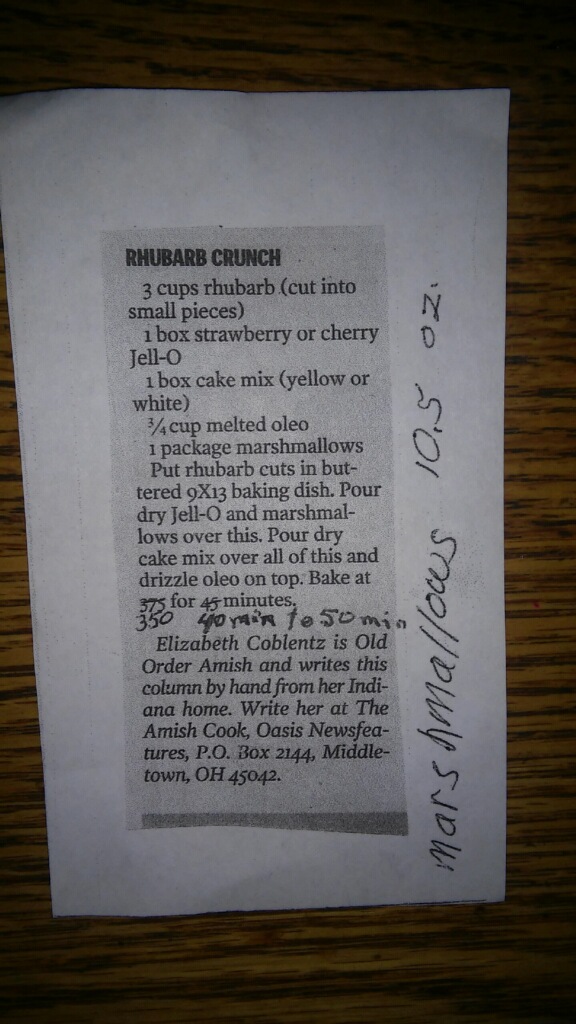 RHUBARB CRUNCH
3 cups rhubarb (cut into
small pieces)
1 box strawberry or cherry
Jell-O
1 box cake mix (yellow or
white)
¾ cup melted oleo
1 package marshmallows
Put rhubarb cuts in but-
tered 9X13 baking dish. Pour
dry Jell-O and marshmal-
lows over this. Pour dry
cake mix over all of this and
drizzle oleo on top. Bake at
375 for 45 minutes.
350 40 min to 50 min
Elizabeth Coblentz is Old
Order Amish and writes this
column by hand from her Indi-
ana home. Write her at The
Amish Cook, Oasis Newsfea-
tures, P.O. Box 2144, Middle-
town, OH 45042.
marshmallows 10.5 oz.